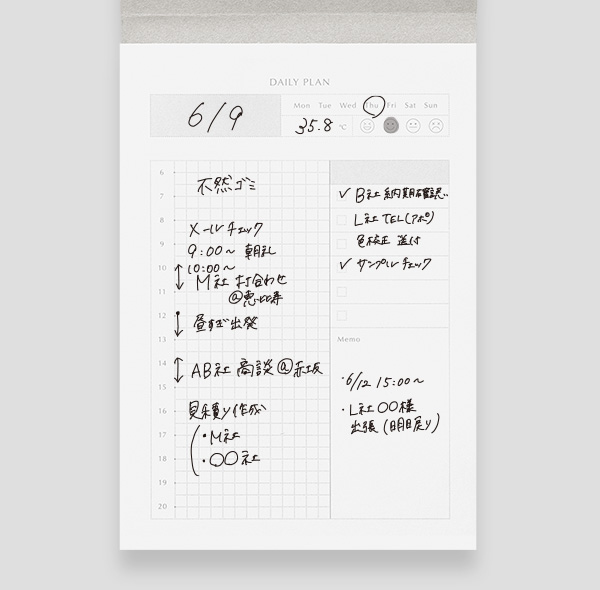 DAILY PLAN
6/9
Mon Tue Wed Thu Fri Sat Sun
35.8 ℃
6
7
8
9
10
11
12
13
14
15
16
17
18
19
20
不然ゴミ
メールチェック
9:00〜 朝礼
10:00〜
M社 打合わせ
@恵比寿
昼すぎ出発
AB社 商談@赤坂
見積り作成
・M社
・〇〇社
✓ B社 納期確認
L社 TEL(アポ)
色校正 送付
✓ サンプルチェック
Memo
・6/12 15:00〜
・L社〇〇様
出張(明日戻り)